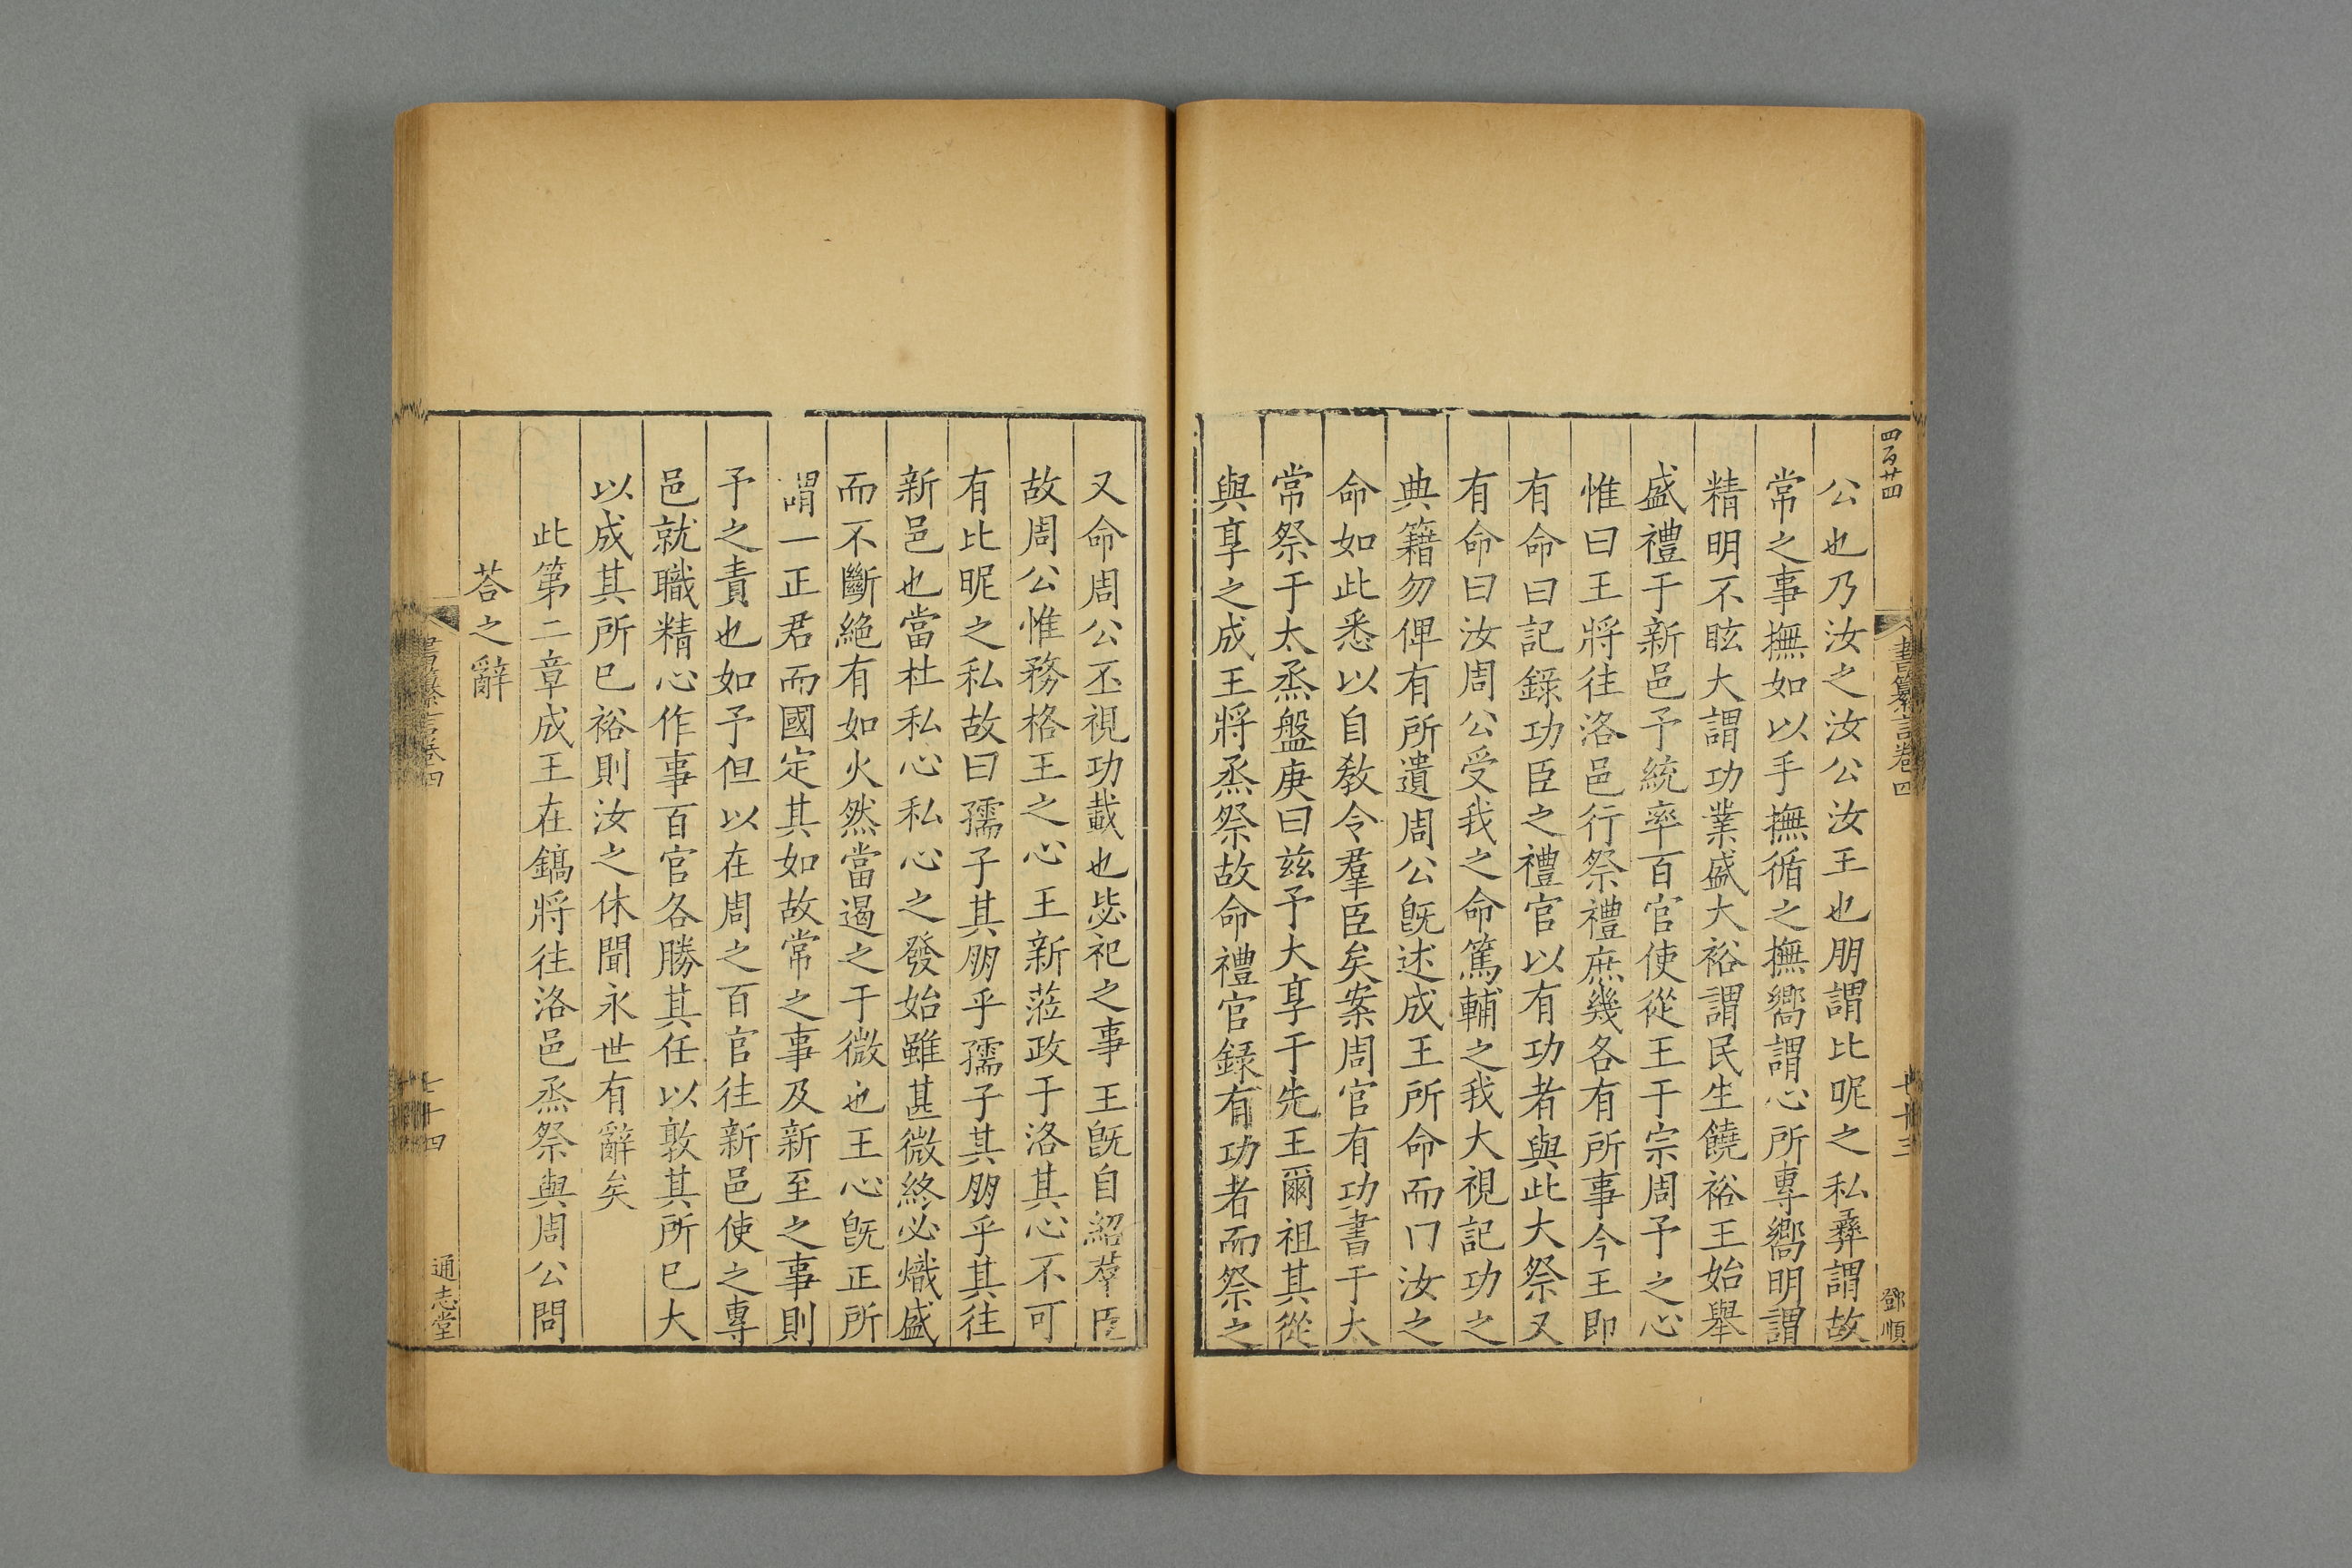 四百廿四
書纂言卷四
七十三
鄧順
公也乃汝之汝公汝王也朋謂比昵之私彛謂故
常之事撫如以手撫循之撫嚮謂心所專嚮明謂
精明不眩大謂功業盛大裕謂民生饒裕王始舉
盛禮于新邑予統率百官使從王于宗周予之心
惟曰王將往洛邑行祭禮庶幾各有所事今王即
有命曰記錄功臣之禮官以有功者與此大祭又
有命曰汝周公受我之命篤輔之我大視記功之
典籍勿俾有所遺周公旣述成王所命而門汝之
命如此悉以自敎令羣臣矣案周官有功書于大
常祭于太烝盤庚曰兹予大享于先王爾祖其從
與享之成王將烝祭故命禮官錄有功者而祭之
又命周公丕視功載也毖祀之事王旣自紹羣臣
故周公惟務格王之心王新蒞政于洛其心不可
有比昵之私故曰孺子其朋乎孺子其朋乎其往
新邑也當杜私心私心之發始雖甚微終必熾盛
而不斷絕有如火然當遏之于微也王心旣正所
謂一正君而國定其如故常之事及新至之事則
予之責也如予但以在周之百官往新邑使之專
邑就職精心作事百官各勝其任以敦其所已大
以成其所已裕則汝之休聞永世有辭矣
此第二章成王在鎬將往洛邑烝祭與周公問
荅之辭
書纂言卷四
七十四
通志堂